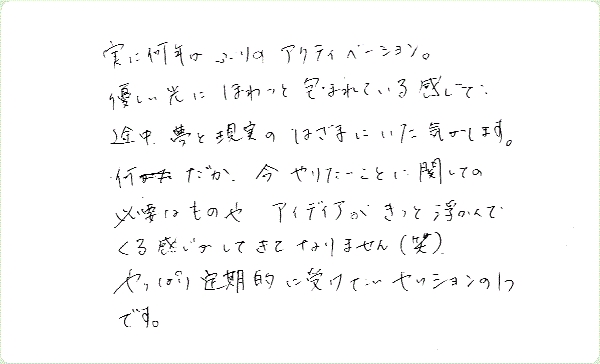 実に何年ぶりのアクティベーション。
優しい光にほわっと包まれている感じで、
途中、夢と現実のはざまにいた気がします。
何だか、今やりたいことに関しての
必要なものや アイディアが きっと浮かんで
くる感じがしてきてなりません(笑)
やっぱり定期的に受けたいセッションの1つ
です。